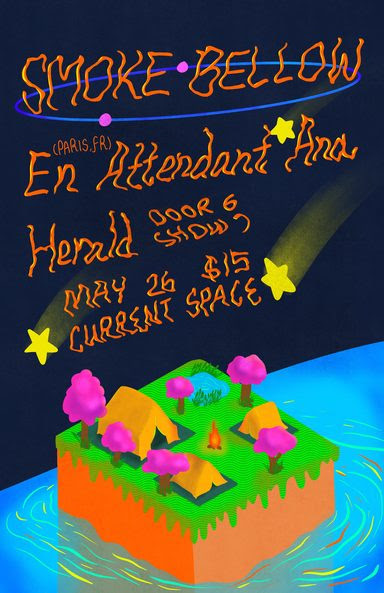 SMOKE BELLOW
(PARIS, FR)
En Attendant Ana
Herald
DOOR 6
SHOW 7
MAY 26 $15
CURRENT SPACE